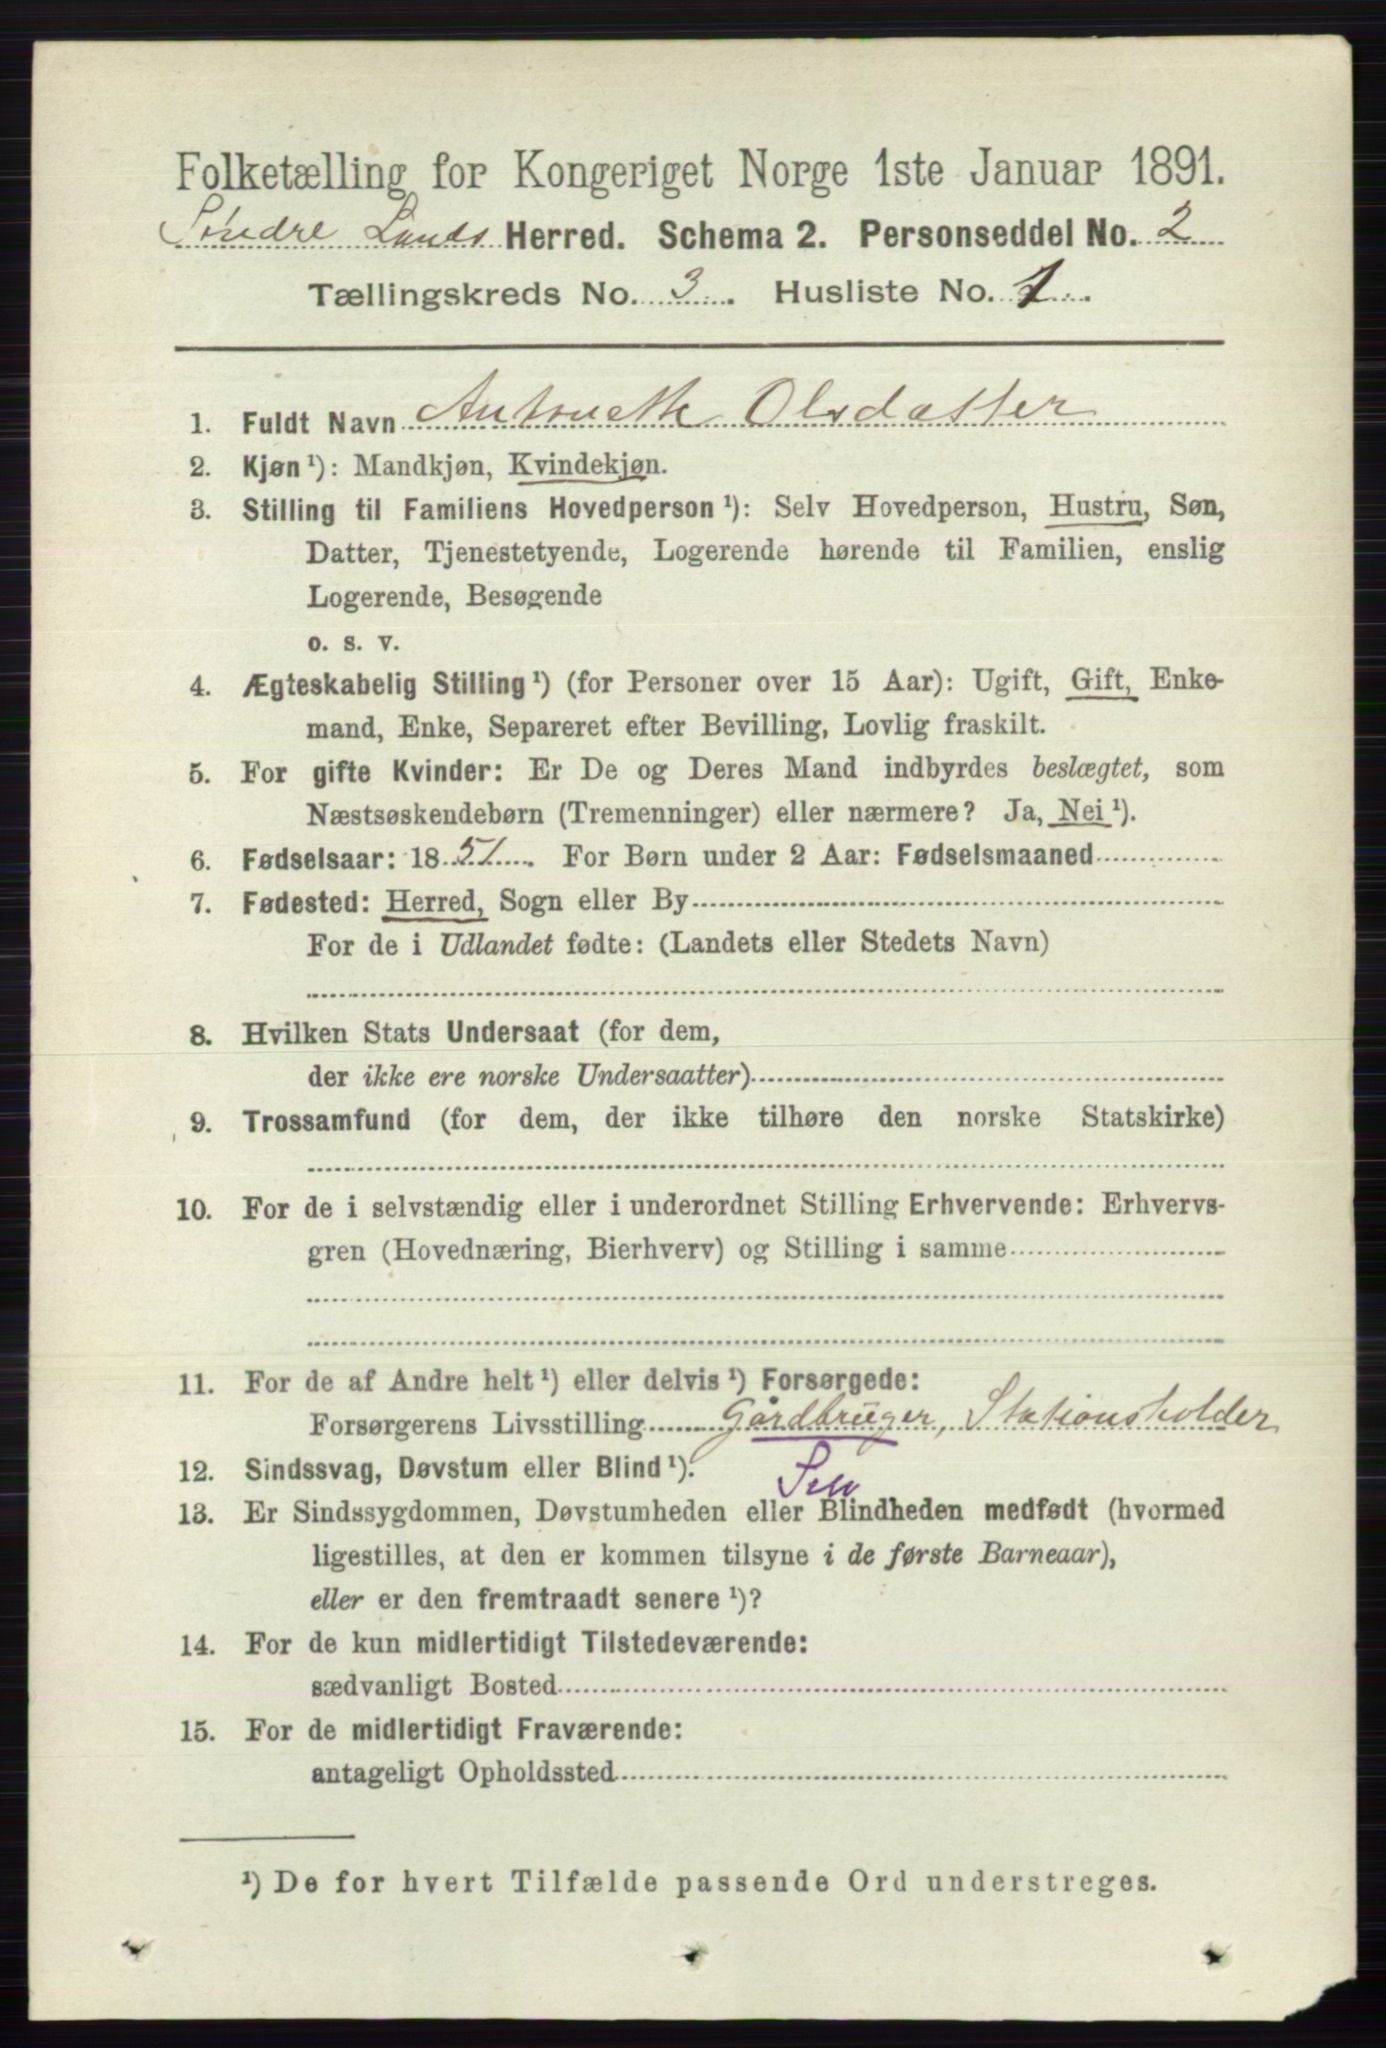 Folketælling for Kongeriget Norge 1ste Januar 1891.
Søndre Lands Herred. Schema 2. Personseddel No. 2
Tællingskreds No. 3. Husliste No. 1.
1. Fuldt Navn Antonette Olsdatter
2. Kjøn ¹): Mandkjøn, Kvindekjøn.
3. Stilling til Familiens Hovedperson ¹): Selv Hovedperson, Hustru, Søn,
Datter, Tjenestetyende, Logerende hørende til Familien, enslig
Logerende, Besøgende
o. s. v.
4. Ægteskabelig Stilling ¹) (for Personer over 15 Aar): Ugift, Gift, Enke-
mand, Enke, Separeret efter Bevilling, Lovlig fraskilt.
5. For gifte Kvinder: Er De og Deres Mand indbyrdes beslægtet, som
Næstsøskendebørn (Tremenninger) eller nærmere? Ja, Nei ¹).
6. Fødselsaar: 1851. For Børn under 2 Aar: Fødselsmaaned
7. Fødested: Herred, Sogn eller By
For de i Udlandet fødte: (Landets eller Stedets Navn)
8. Hvilken Stats Undersaat (for dem,
der ikke ere norske Undersaatter)
9. Trossamfund (for dem, der ikke tilhøre den norske Statskirke)
10. For de i selvstændig eller i underordnet Stilling Erhvervende: Erhvervs-
gren (Hovednæring, Bierhverv) og Stilling i samme
11. For de af Andre helt ¹) eller delvis ¹) Forsørgede:
Forsørgerens Livsstilling Gårdbruger, Stationsholder
12. Sindssvag, Døvstum eller Blind ¹). Selv
13. Er Sindssygdommen, Døvstumheden eller Blindheden medfødt (hvormed
ligestilles, at den er kommen tilsyne i de første Barneaar),
eller er den fremtraadt senere ¹)?
14. For de kun midlertidigt Tilstedeværende:
sædvanligt Bosted
15. For de midlertidigt Fraværende:
antageligt Opholdssted
¹) De for hvert Tilfælde passende Ord understreges.